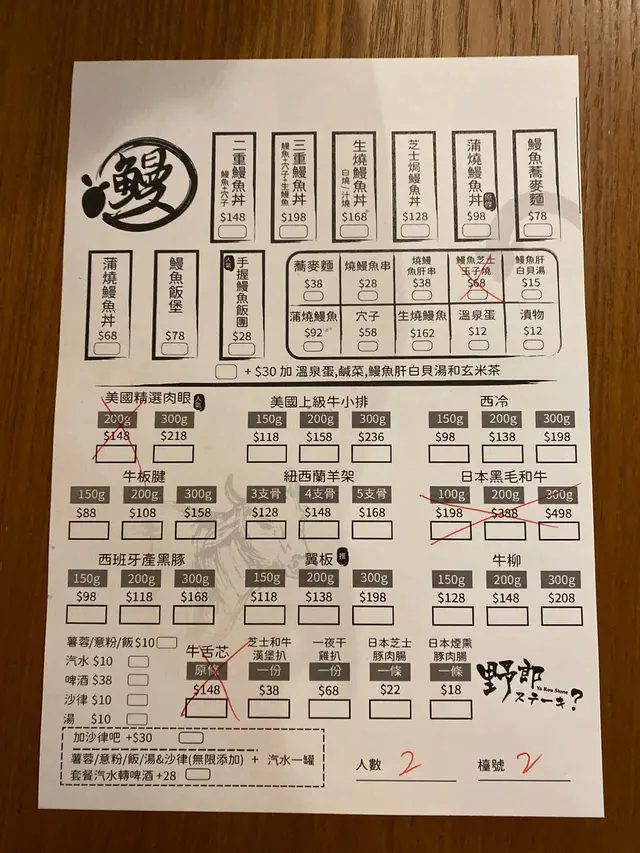 鰻
二重鰻魚丼
鰻魚+穴子
$148
三重鰻魚丼
鰻魚+穴子+生鰻魚
$198
生燒鰻魚丼
白燒/汁燒
$168
芝士焗鰻魚丼
$128
蒲燒鰻魚丼
$98
鰻魚蕎麥麵
$78
蒲燒鰻魚丼
$68
鰻魚飯堡
$78
人氣
手握鰻魚飯團
$28
蕎麥麵 燒鰻魚串 燒鰻魚肝串 鰻魚芝士玉子燒 鰻魚肝白貝湯
$38 $28 $38 $68 $15
蒲燒鰻魚 穴子 生燒鰻魚 溫泉蛋 漬物
$92 $58 $162 $12 $12
+ $30 加 溫泉蛋,鹹菜,鰻魚肝白貝湯和玄米茶
美國精選肉眼 人氣 美國上級牛小排 西冷
200g 300g 150g 200g 300g 150g 200g 300g
$148 $218 $118 $158 $236 $98 $138 $198
牛板腱 紐西蘭羊架 日本黑毛和牛
150g 200g 300g 3支骨 4支骨 5支骨 100g 200g 300g
$88 $108 $158 $128 $148 $168 $198 $388 $498
西班牙產黑豚 翼板 推 牛柳
150g 200g 300g 150g 200g 300g 150g 200g 300g
$98 $118 $168 $118 $138 $198 $128 $148 $208
薯蓉/意粉/飯 $10
汽水 $10
啤酒 $38
沙律 $10
湯 $10
牛舌芯 芝士和牛漢堡扒 一夜干雞扒 日本芝士豚肉腸 日本煙熏豚肉腸
原條 一份 一份 一條 一條
$148 $38 $68 $22 $18
野郎
Ya Rou Stone
ステーキ?
加沙律吧 +$30
薯蓉/意粉/飯/湯&沙律(無限添加) + 汽水一罐
套餐汽水轉啤酒 +28
人數 2 檯號 2